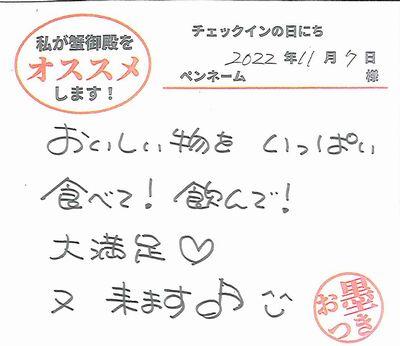 私が蟹御殿を
オススメ
します!
チェックインの日にち
2022年11月7日
ペンネーム 様
おいしい物を いっぱい
食べて! 飲んで!
大満足♡
又 来ます♪
お墨つき